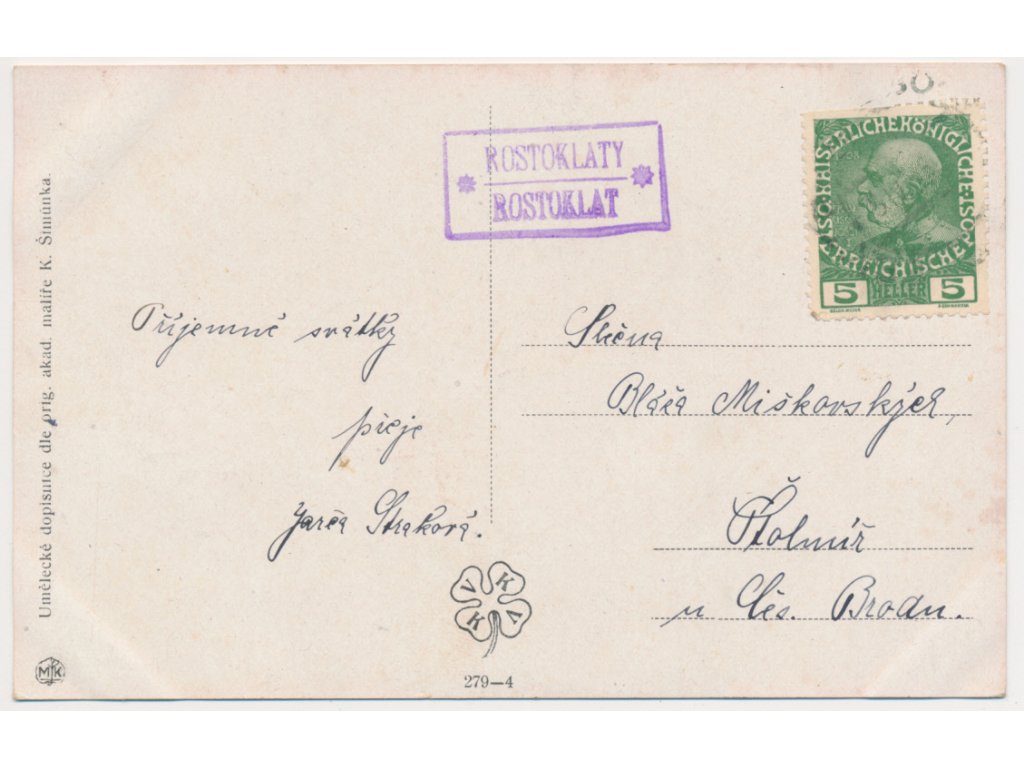 ROSTOKLATY
ROSTOKLAT
KAISERLICHE KÖNIGLICHE
ÖSTERREICHISCHE POST
1908
5 HELLER 5
Příjemné svátky
přeje
Jarča Straková.
Slečna
Bláža Miškovských,
Štolmíř
u Čes. Brodu.
Umělecké dopisnice dle orig. akad. malíře K. Šimůnka.
MK
V K
K V
279—4